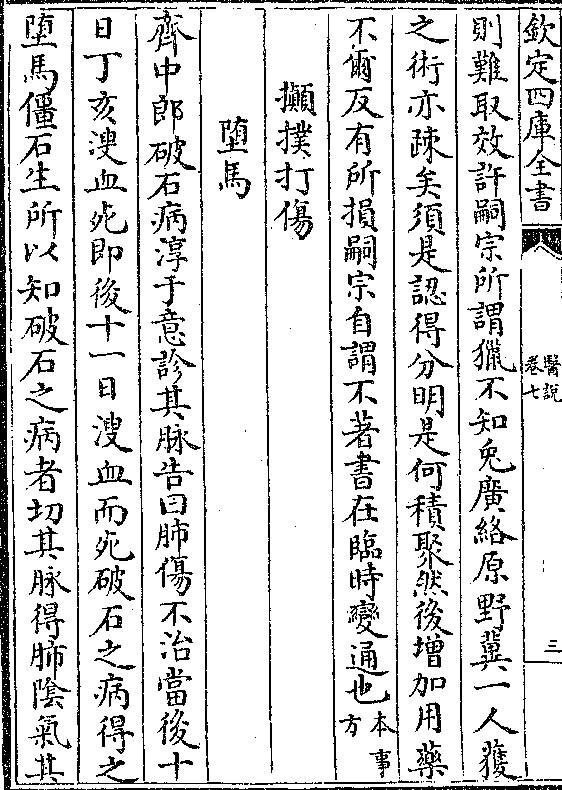 欽定四庫全書
醫說
卷七
三
則難取效許嗣宗所謂獵不知兔廣絡原野冀一人獲
之術亦疎矣須是認得分明是何積聚然後增加用藥
不爾反有所損嗣宗自謂不著書在臨時變通也本事方
攧撲打傷
墮馬
齊中郎破石病淳于意診其脉告曰肺傷不治當後十
日丁亥溲血死即後十一日溲血而死破石之病得之
堕馬僵石生所以知破石之病者切其脉得肺陰氣其